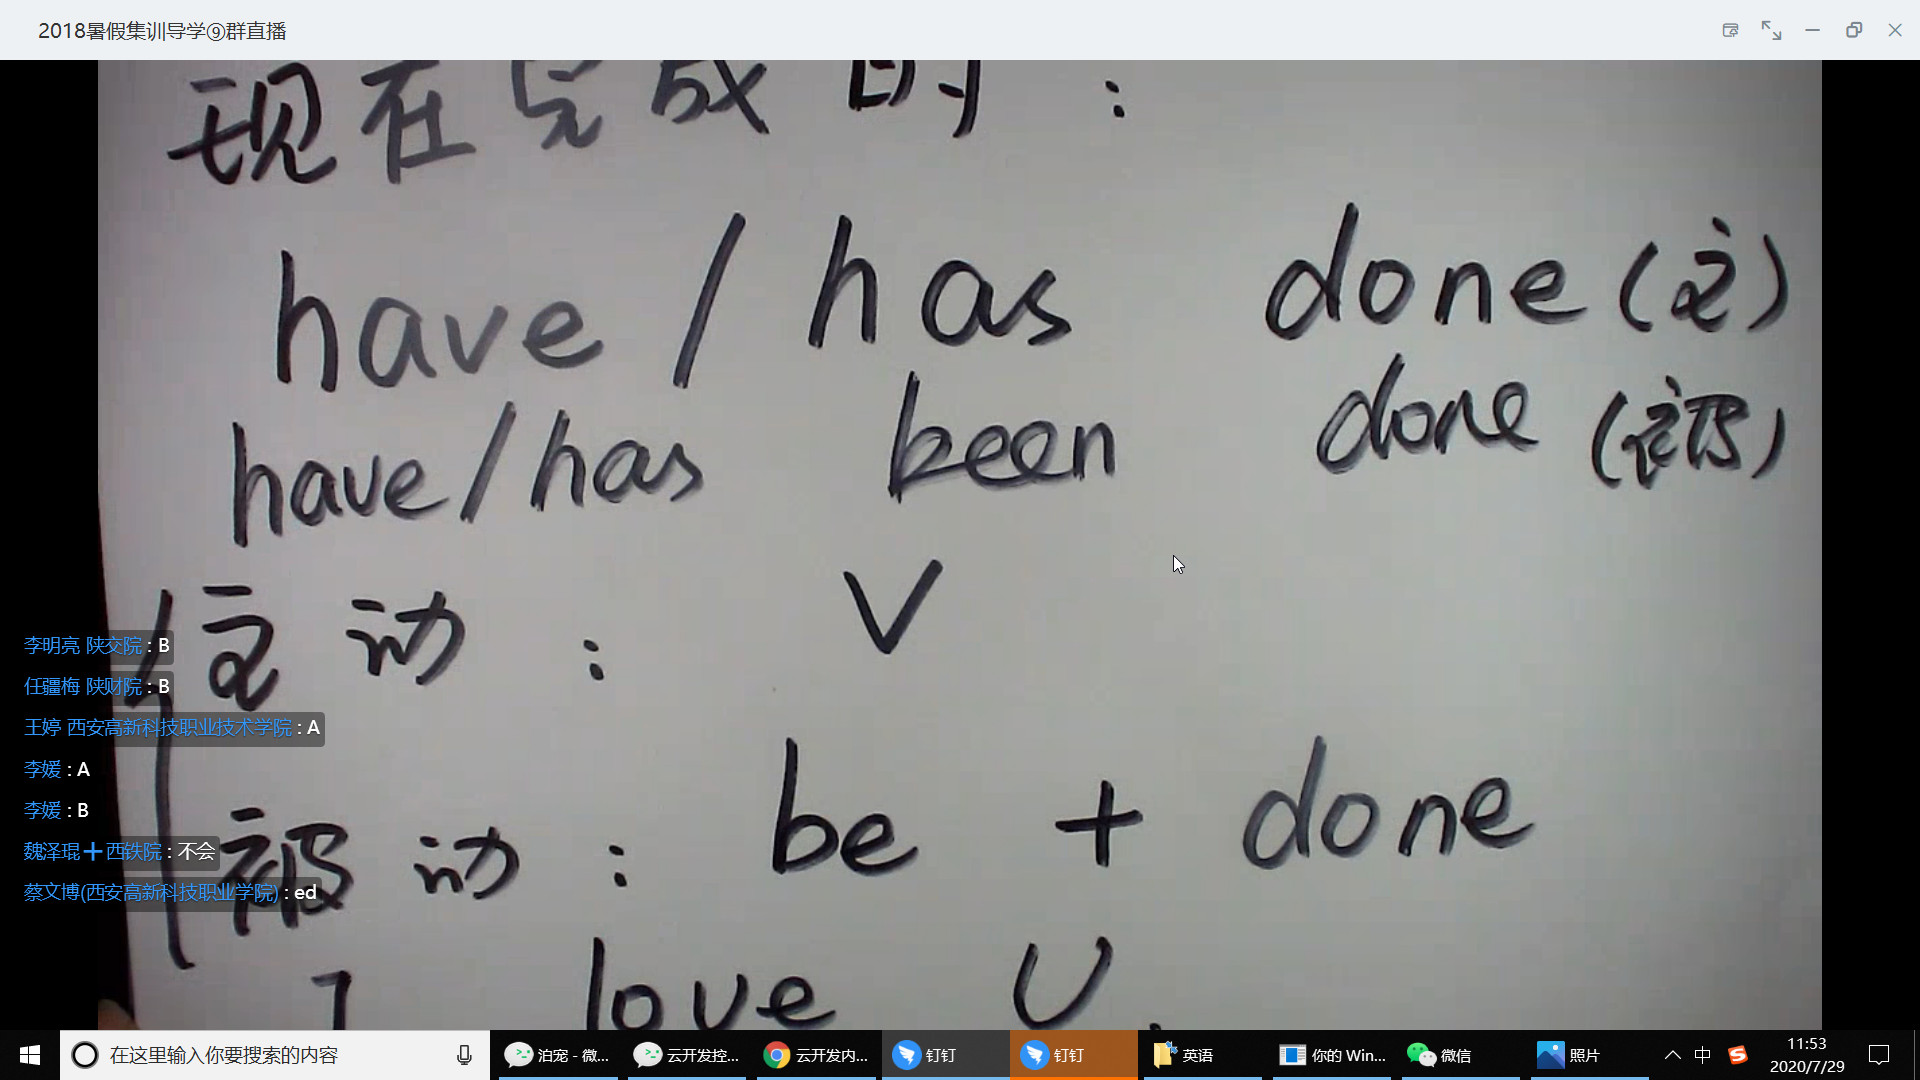 2018暑假集训导学⑨群直播
现在完成时：
have / has done (主)
have/has been done (被)
主动： V
李明亮 陕交院 : B
任疆梅 陕财院 : B
王婷 西安高新科技职业技术学院 : A
李媛 : A
李媛 : B
被动： be + done
魏泽琨➕西铁院 : 不会
蔡文博(西安高新科技职业学院) : ed
I love U.
在这里输入你要搜索的内容
泊宠 - 微...
云开发控...
云开发内...
钉钉
钉钉
英语
你的 Win...
微信
照片
中
11:53
2020/7/29